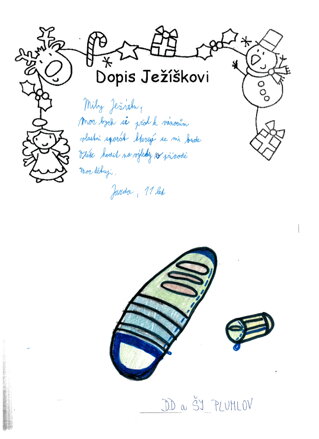 Dopis Ježíškovi
Milý Ježíšku,
Moc bych si přál k vánocům
vlastní spacák který se mi bude
kodil na výlety v přírodě
Moc děkuji.
Jarda, 11 let
DD a ŠJ PLUMLOV